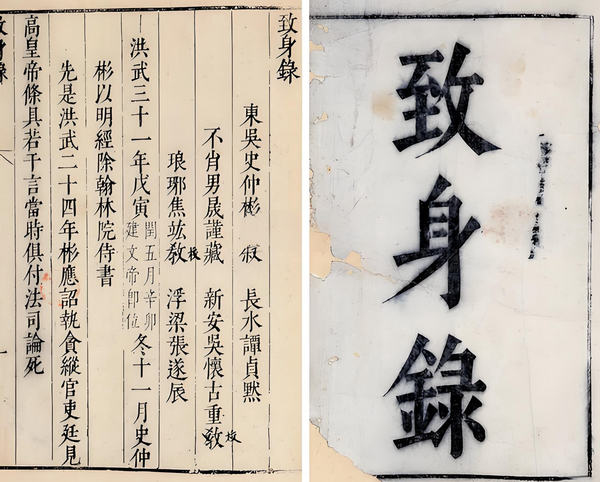 致身錄
致身錄
東吳史仲彬 叙 長水譚貞黙
不肖男晟謹藏 新安吳懷古重敎校
琅琊焦竑敎校 浮梁張遂辰
洪武三十一年戊寅閏五月辛卯建文帝卽位冬十一月史仲
彬以明經除翰林院侍書
先是洪武二十四年彬應詔執貪縱官吏廷見
高皇帝條具若干言當時俱付法司論死
致身錄